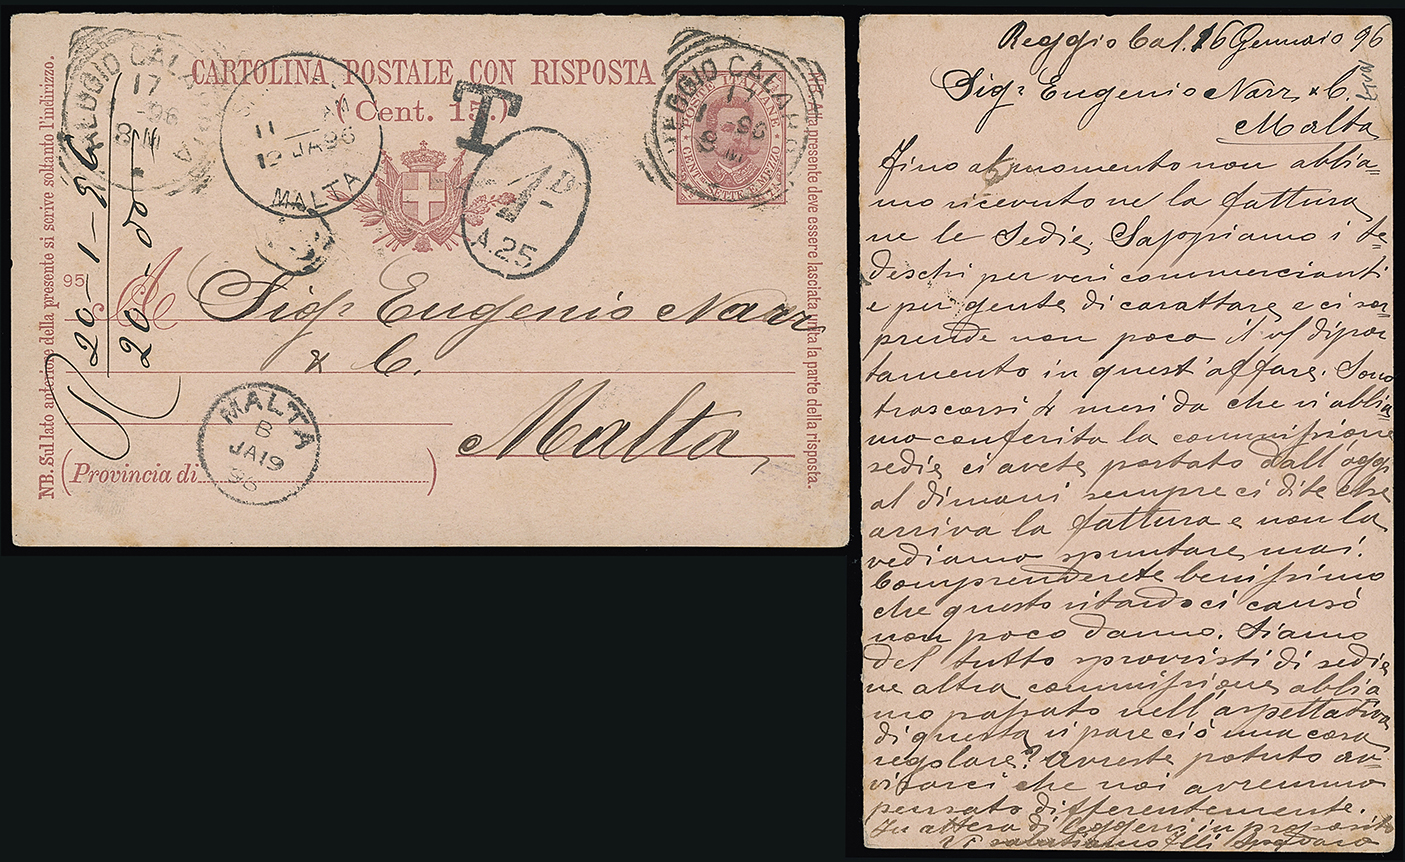 CARTOLINA POSTALE CON RISPOSTA
(Cent. 15.)
T
REGGIO CALABRIA
17
1-96
8 M
REGGIO CALABRIA
17
96
8 M
11 AM
12 JA 96
MALTA
1D
A.25
POSTE ITALIANE
CENT. SETTE E MEZZO
NB. Sul lato anteriore della presente si scrive soltanto l'indirizzo.
NB. Alla presente deve essere lasciata unita la parte della risposta.
95
20-1-96
A Sigr Eugenio Narr
& C.
Malta
MALTA
B
JA 19
96
(Provincia di )
Reggio Cal. 16 Gennaio 96
Sigr Eugenio Narr & C.
Malta
Fino al momento non abbia=
mo ricevuto ne la fattura
ne le Sedie, Sappiamo i te=
deschi per veri commercianti
e per gente di carattare e ci sor=
prende non poco il vs/ dipor
tamento in quest'affare. Sono
trascorsi 4 mesi da che vi abbia=
mo conferito la commissione
sedie ci avete portato dall'oggi
al dimani sempre ci dite che
arriva la fattura e non la
vediamo spuntare mai.
Comprenderete benissimo
che questo ritardo ci causò
non poco danno. Siamo
del tutto sprovvisti di sedie
ne altra commissione abbia
mo passato nell'aspettativa
di questa vi pare ciò una cosa
regolare? Avreste potuto av=
visarci che noi avremmo
pensato differentemente.
In attesa di leggervi in proposito
Vi salutiamo